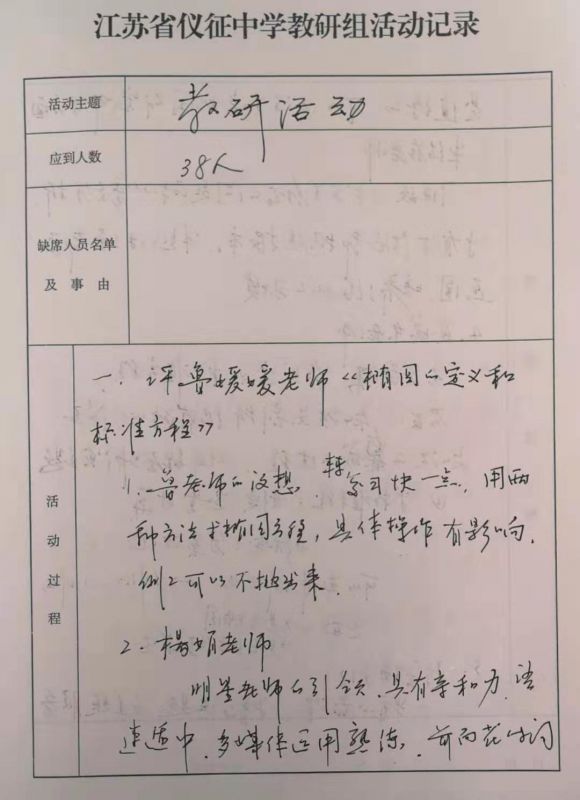 江苏省仪征中学教研组活动记录
活动主题 教研活动
应到人数 38人
缺席人员名单
及事由
活动过程
一、评鲁媛媛老师《椭圆的定义和
标准方程》
1. 鲁老师的设想, 转学习快一点, 用两
种方法求椭圆方程, 具体操作有影响.
例2可以不抛出来.
2. 杨娟老师
明星老师的引领, 具有亲和力, 语
速适中, 多媒体运用熟练,